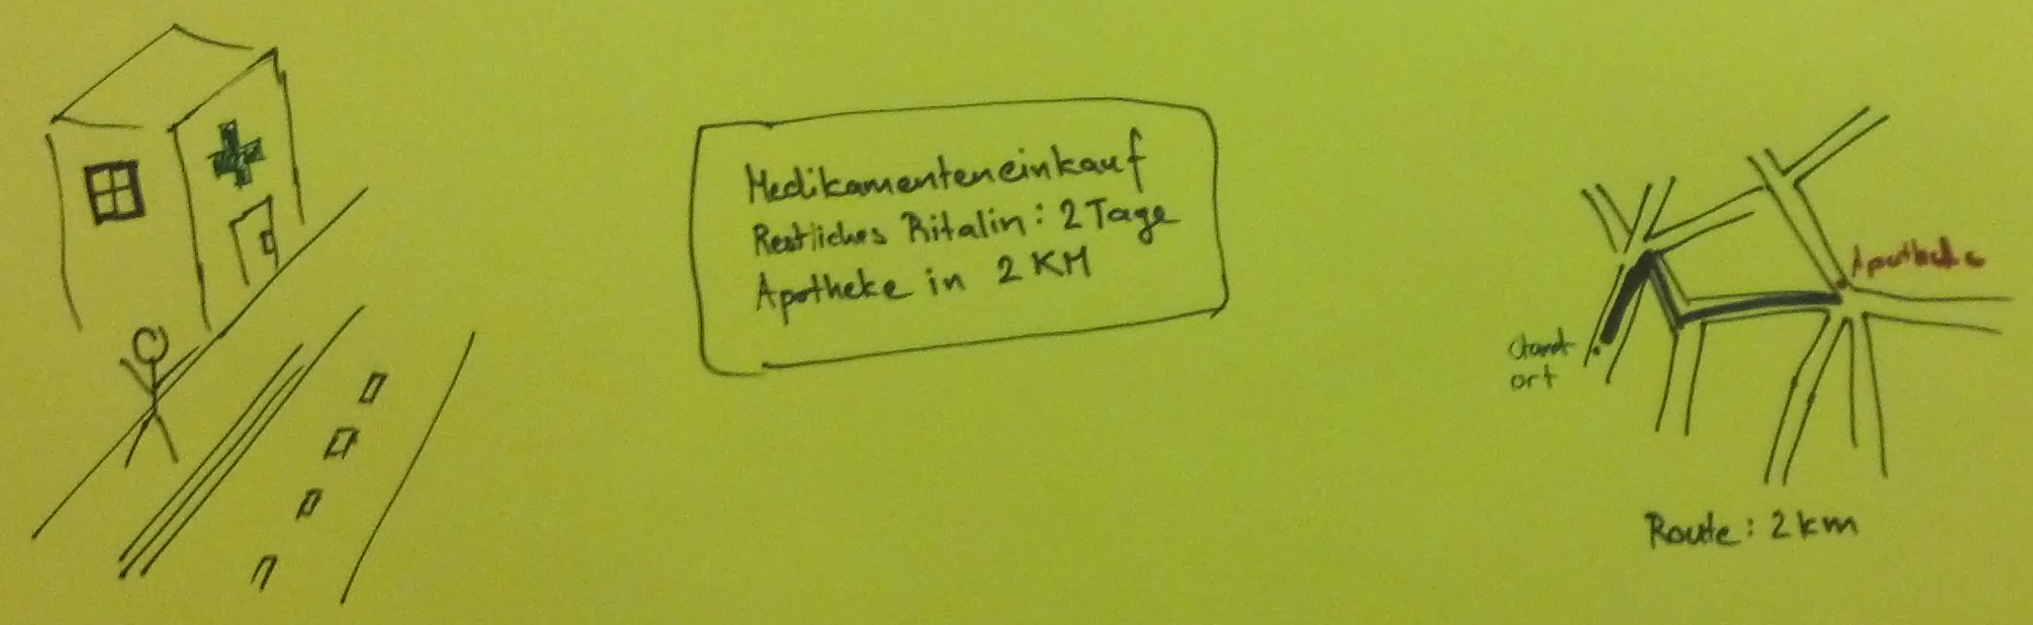 Medikamenteneinkauf
Restliches Ritalin: 2 Tage
Apotheke in 2 KM
Apotheke
Standort
ort
Route: 2 km